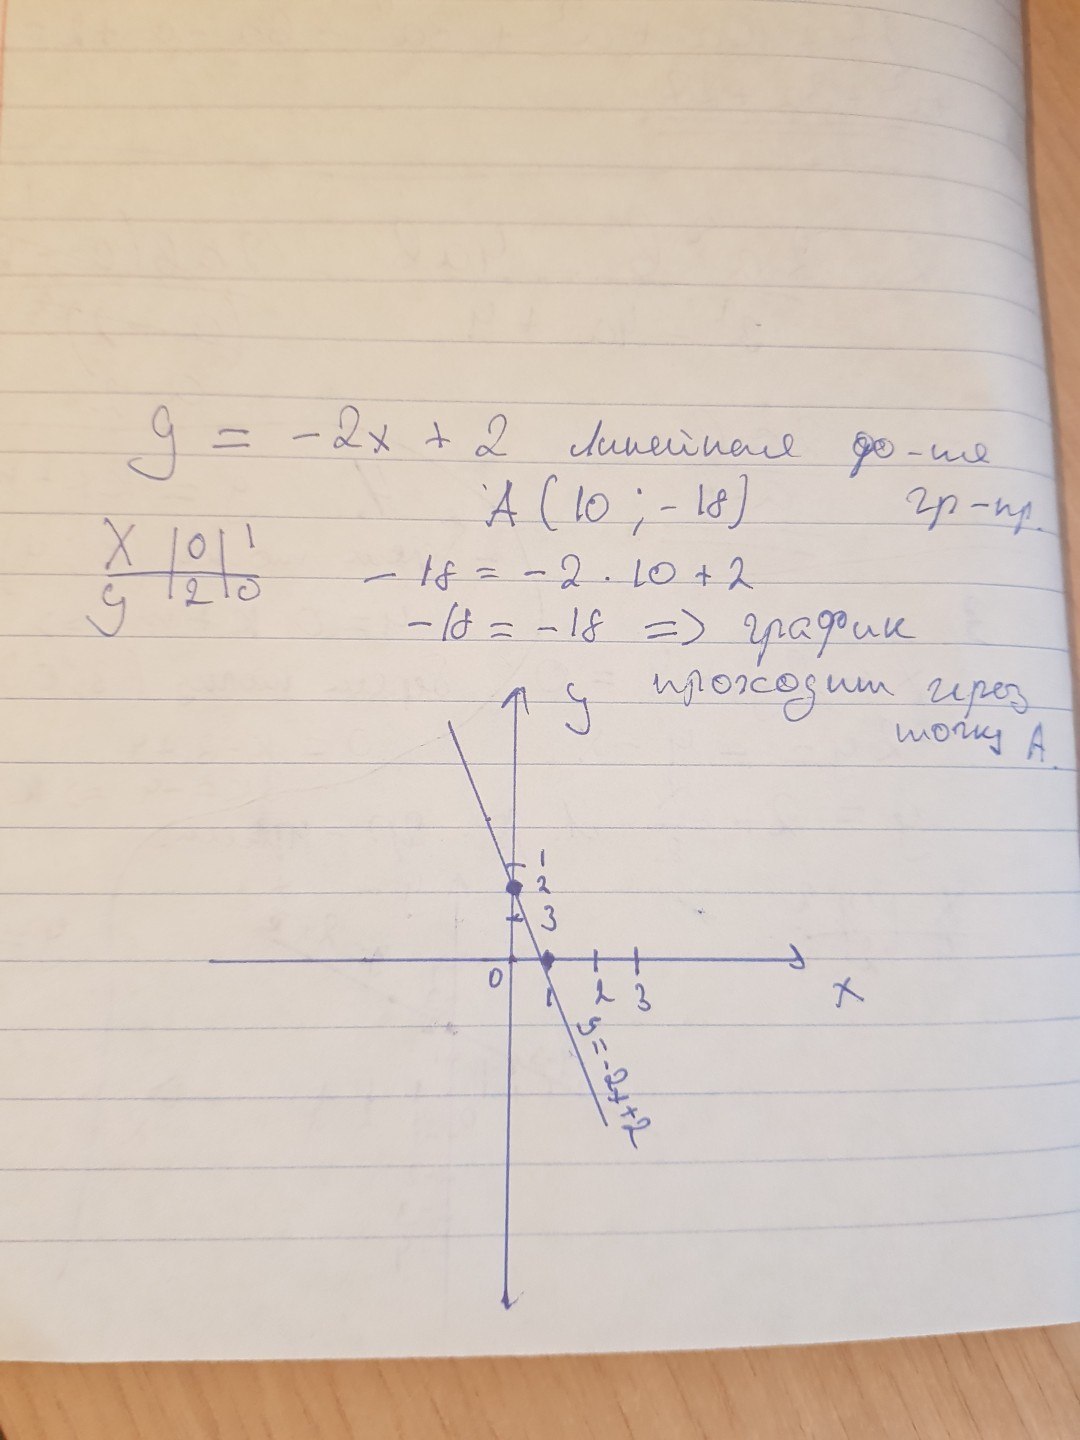 y = -2x + 2 линейная ф-ия
A (10 ; -18) гр-пр.
X | 0 | 1
y | 2 | 0
-18 = -2 · 10 + 2
-18 = -18 => график
проходит через
точку A.
y
1
2
3
0 1 2 3
x
y = -2x+2